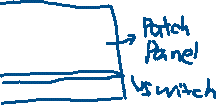 Patch
Panel
vswitch